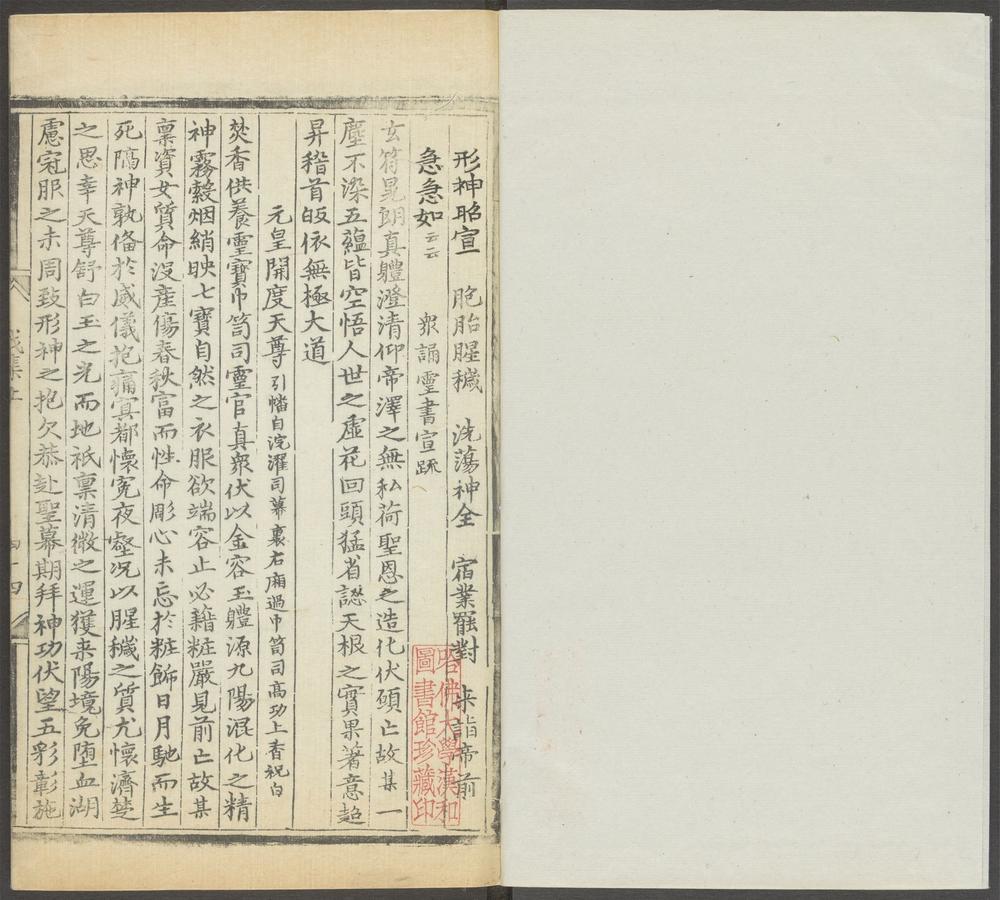 形神昭宣　胞胎腥穢　洗蕩神全　宿業寃對　来詣帝前
急急如云云　衆誦靈書宣䟽
玄符晃朗真軆澄清仰帝澤之無私荷聖恩之造化伏願亡故某一
塵不染五蘊皆空悟人世之虛花回頭猛省認天根之實果著意超
昇稽首皈依無極大道
元皇開度天尊引旛自浣濯司幕裏右廂過巾笥司高功上香祝白
焚香供養靈寶巾笥司靈官真衆伏以金容玉軆源九陽混化之精
神霧縠烟綃映七寶自然之衣服欲端容止必藉粧嚴見前亡故某
禀資女質命沒産傷春秋富而性命彫心未忘於粧飾日月馳而生
死隔神孰俻於威儀抱痛㝠都懷寃夜壑况以腥穢之質尤懷濟楚
之思幸天尊舒白玉之光而地祇禀清微之運獲来陽境免堕血湖
慮冠服之未周致形神之抱欠恭赴聖幕期拜神功伏望五彩彰施
集上
四十四
哈佛大學漢和圖書館珍藏印